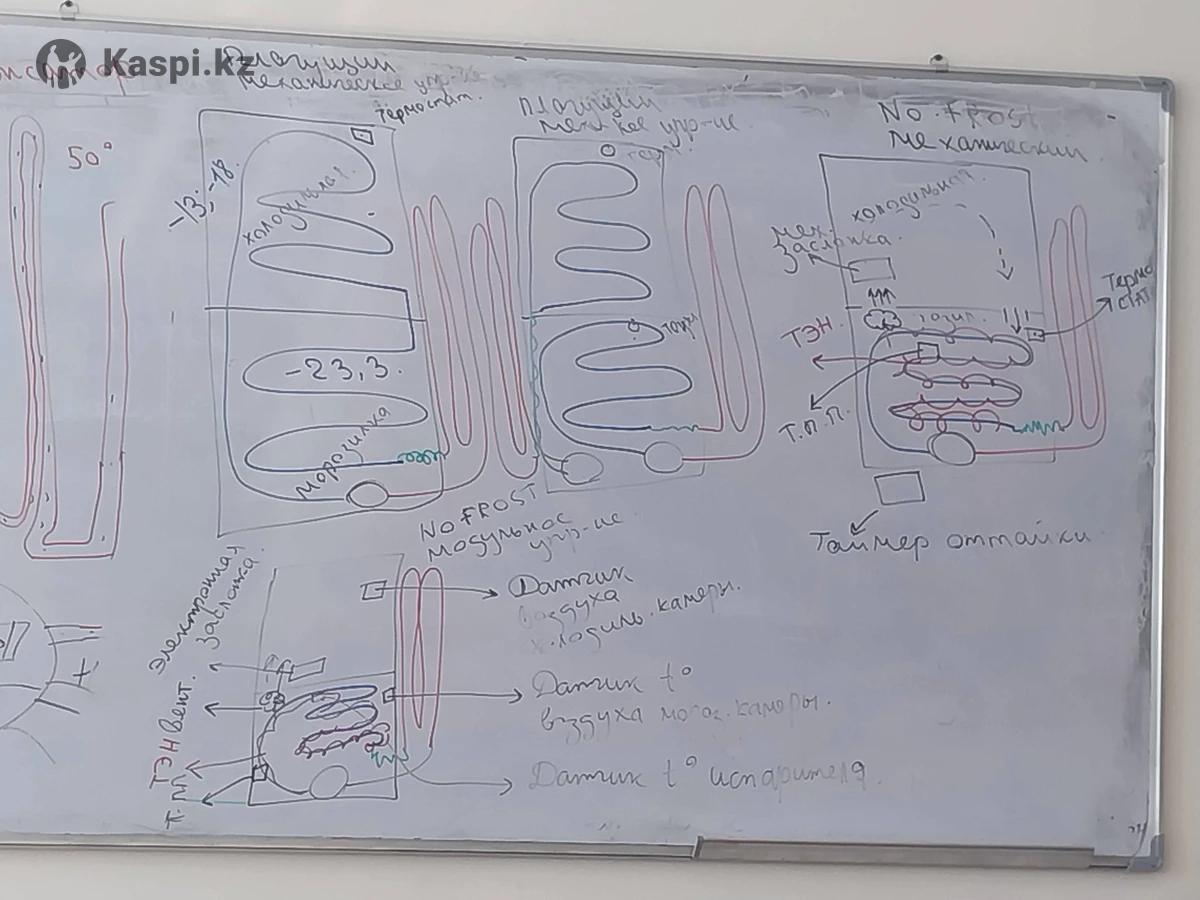 Kaspi.kz
Плачущий
механическое упр-е
термостат.
50°
-13; -18
холодильная.
-23,3.
морозилка
Плачущий
мех-кое упр-ие.
терм.
No FROST
механический
холодильная
мех.
заслонка.
Термо
стат
ТЭН.
Т.П.П.
Таймер оттайки
NO FROST
модульное
упр-ие.
Электронная
заслонка.
Вент.
ТЭН
Датчик
воздуха
холодиль. камеры.
Датчик t°
воздуха мороз. камеры.
Датчик t° испарителя.